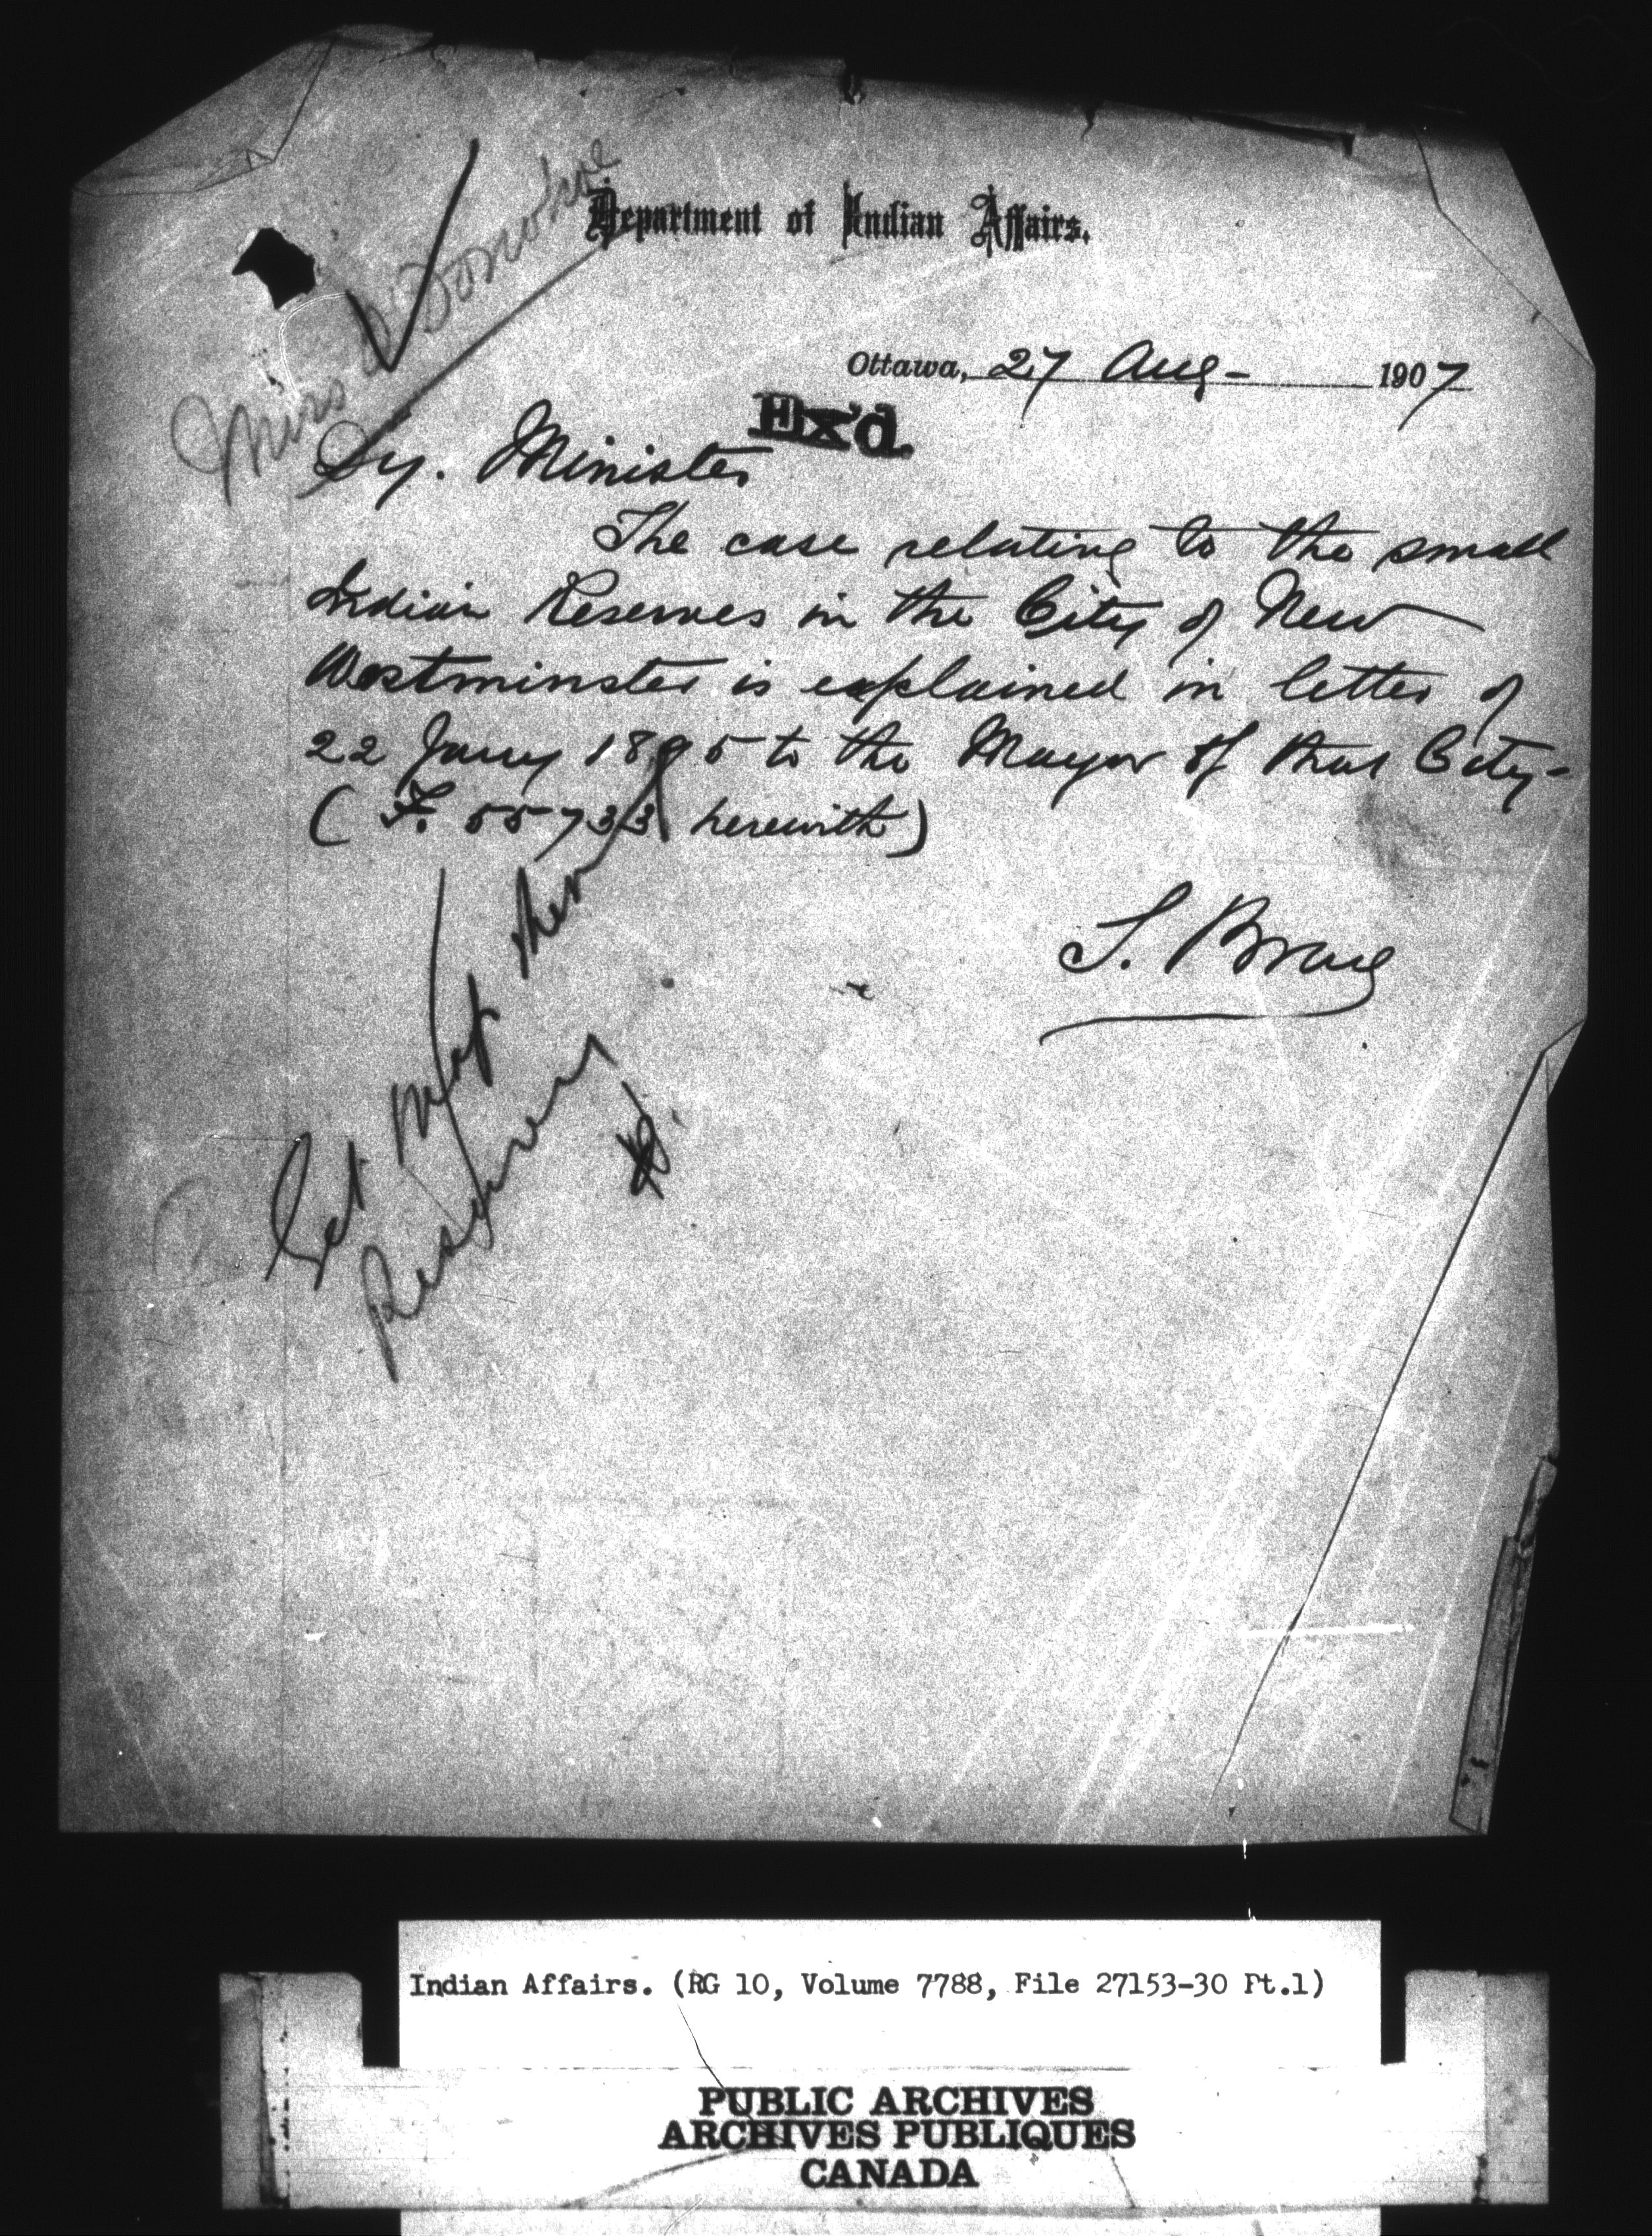 Miss O'Donohue
Department of Indian Affairs.
Ottawa, 27 Aug- 1907
Ex'd.
Dy. Minister
The case relating to the small
Indian Reserves in the City of New
Westminster is explained in letter of
22 Jany 1895 to the Mayor of that City-
(F. 55733 herewith)
S. Bray
Get Map
Indian Affairs. (RG 10, Volume 7788, File 27153-30 Pt.1)
PUBLIC ARCHIVES
ARCHIVES PUBLIQUES
CANADA